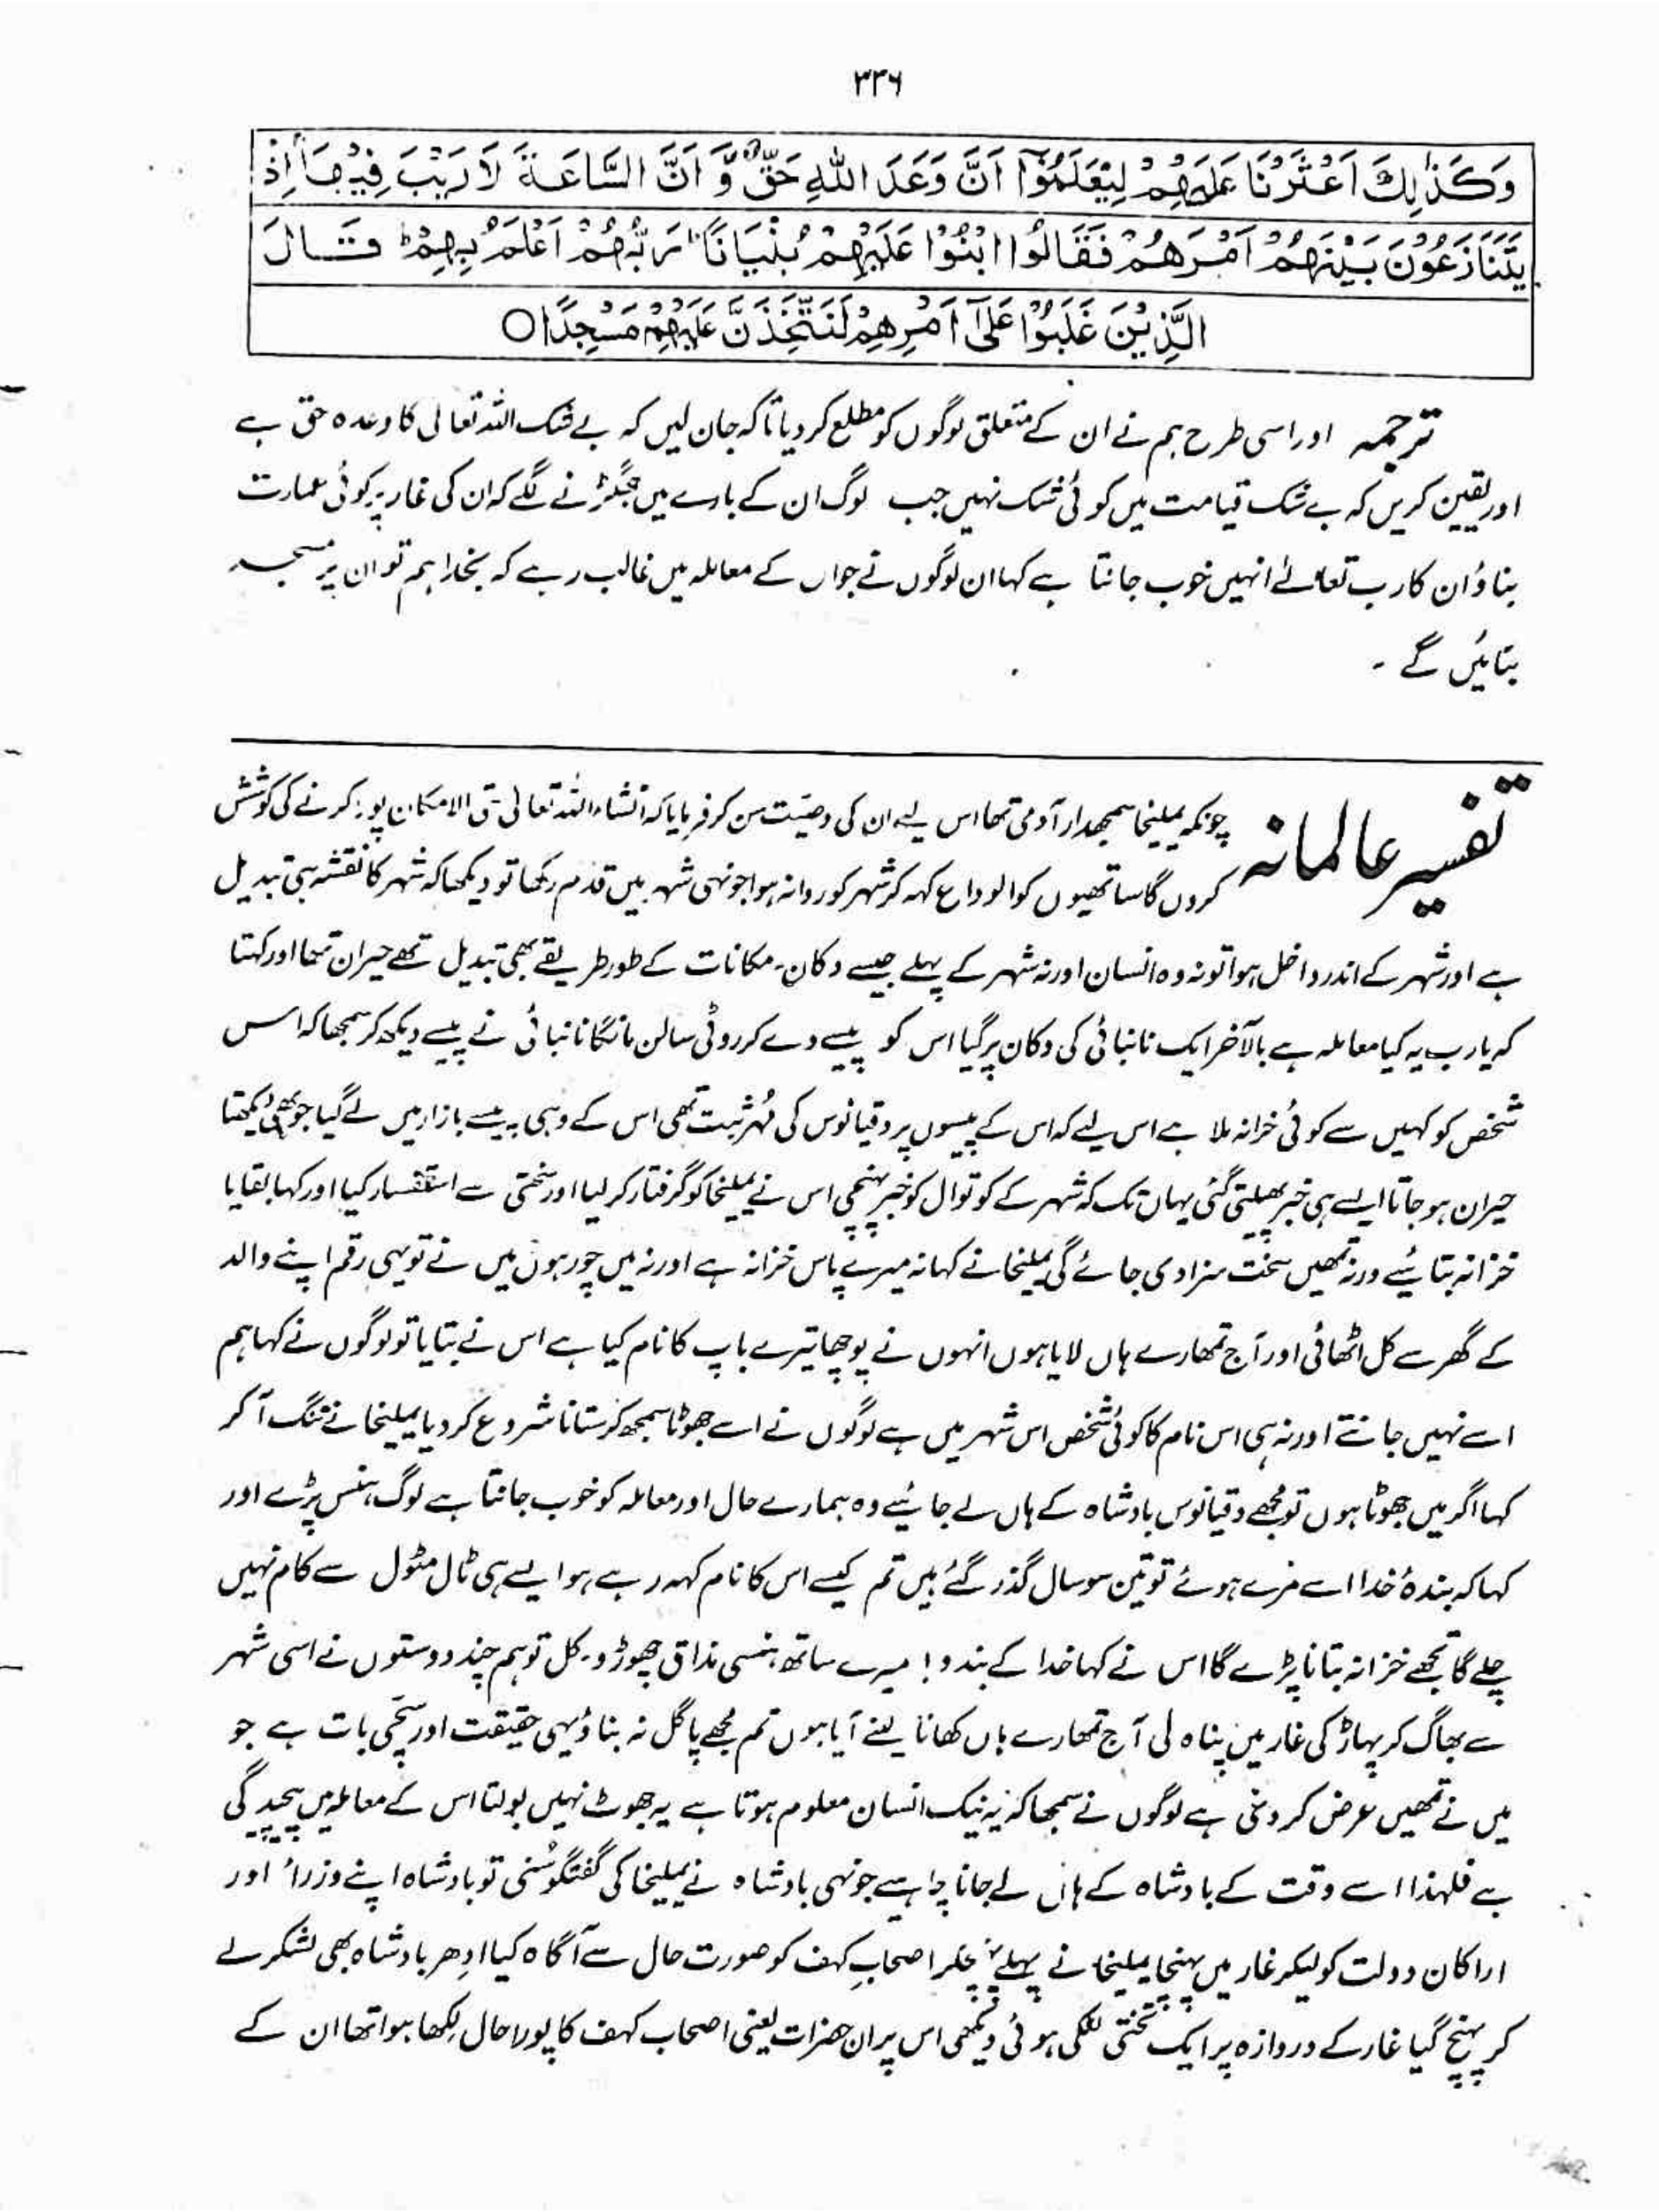 ۳۳۶
وَكَذٰلِكَ اَعْثَرْنَا عَلَيْهِمْ لِيَعْلَمُوْٓا اَنَّ وَعْدَ اللّٰهِ حَقٌّ وَّ اَنَّ السَّاعَةَ لَا رَيْبَ فِيْهَا اِذْ
يَتَنَازَعُوْنَ بَيْنَهُمْ اَمْرَهُمْ فَقَالُوا ابْنُوْا عَلَيْهِمْ بُنْيَانًا رَبُّهُمْ اَعْلَمُ بِهِمْ ط قَالَ
الَّذِيْنَ غَلَبُوْا عَلٰٓى اَمْرِهِمْ لَنَتَّخِذَنَّ عَلَيْهِمْ مَسْجِدًا ○
ترجمہ اور اسی طرح ہم نے ان کے متعلق لوگوں کو مطلع کر دیا تاکہ جان لیں کہ بے شک اللہ تعالی کا وعدہ حق ہے
اور یقین کریں کہ بے شک قیامت میں کوئی شک نہیں جب لوگ ان کے بارے میں جھگڑنے لگے کہ ان کی غار پر کوئی عمارت
بناؤ ان کا رب تعالےٰ انہیں خوب جانتا ہے کہا ان لوگوں نے جو اں کے معاملہ میں غالب رہے کہ بخدا ہم تو ان پر مسجد
بنائیں گے ۔
تفسیر عالمانہ چونکہ یملیخا سمجھدار آدمی تھا اس لیے ان کی وصیت سن کر فرمایا کہ انشاء اللہ تعالیٰ حتی الامکان پورا کرنے کی کوشش
کروں گا ساتھیوں کو الوداع کہہ کر شہر کو روانہ ہوا جونہی شہر میں قدم رکھا تو دیکھا کہ شہر کا نقشہ ہی تبدیل
ہے اور شہر کے اندر داخل ہوا تو نہ وہ انسان اور نہ شہر کے پہلے جیسے دکان۔ مکانات کے طور طریقے بھی تبدیل تھے حیران تھا اور کہتا
کہ یارب یہ کیا معاملہ ہے بالآخر ایک نانبائی کی دکان پر گیا اس کو پیسے دے کر روٹی سالن مانگا نانبائی نے پیسے دیکھ کر سمجھا کہ اس
شخص کو کہیں سے کوئی خزانہ ملا ہے اس لیے کہ اس کے پیسوں پر دقیانوس کی مُہر ثبت تھی اس کے وہی پیسے بازار میں لے گیا جو بھی دیکھتا
حیران ہو جاتا ایسے ہی خبر پھیلتی گئی یہاں تک کہ شہر کے کوتوال کو خبر پہنچی اس نے یملیخا کو گرفتار کر لیا اور سختی سے استفسار کیا اور کہا بقایا
خزانہ بتائیے ورنہ تمھیں سخت سزا دی جائے گی یملیخا نے کہا نہ میرے پاس خزانہ ہے اور نہ میں چور ہوں میں نے تو یہی رقم اپنے والد
کے گھر سے کل اٹھائی اور آج تمھارے ہاں لایا ہوں انہوں نے پوچھا تیرے باپ کا نام کیا ہے اس نے بتایا تو لوگوں نے کہا ہم
اسے نہیں جانتے اور نہ ہی اس نام کا کوئی شخص اس شہر میں ہے لوگوں نے اسے جھوٹا سمجھ کر ستانا شروع کر دیا یملیخا نے تنگ آ کر
کہا اگر میں جھوٹا ہوں تو مجھے دقیانوس بادشاہ کے ہاں لے جائیے وہ ہمارے حال اور معاملہ کو خوب جانتا ہے لوگ ہنس پڑے اور
کہا کہ بندۂ خدا اسے مرے ہوئے تو تین سو سال گذر گئے ہیں تم کیسے اس کا نام کہہ رہے ہو ایسے ہی ٹال مٹول سے کام نہیں
چلے گا تجھے خزانہ بتانا پڑے گا اس نے کہا خدا کے بندو! میرے ساتھ ہنسی مذاق چھوڑو۔ کل تو ہم چند دوستوں نے اسی شہر
سے بھاگ کر پہاڑ کی غار میں پناہ لی آج تمھارے ہاں کھانا لینے آیا ہوں تم مجھے پاگل نہ بناؤ یہی حقیقت اور سچی بات ہے جو
میں نے تمھیں عرض کر دی ہے لوگوں نے سمجھا کہ یہ نیک انسان معلوم ہوتا ہے یہ جھوٹ نہیں بولتا اس کے معاملہ میں پیچیدگی
ہے فلہٰذا اسے وقت کے بادشاہ کے ہاں لے جانا چاہیے جونہی بادشاہ نے یملیخا کی گفتگو سُنی تو بادشاہ اپنے وزراء اور
اراکان دولت کو لیکر غار میں پہنچا یملیخا نے پہلے پہنچکر اصحابِ کہف کو صورت حال سے آگاہ کیا ادھر بادشاہ بھی لشکر لے
کر پہنچ گیا غار کے دروازہ پر ایک تختی لٹکی ہوئی دیکھی اس پر ان حضرات یعنی اصحاب کہف کا پورا حال لکھا ہوا تھا ان کے